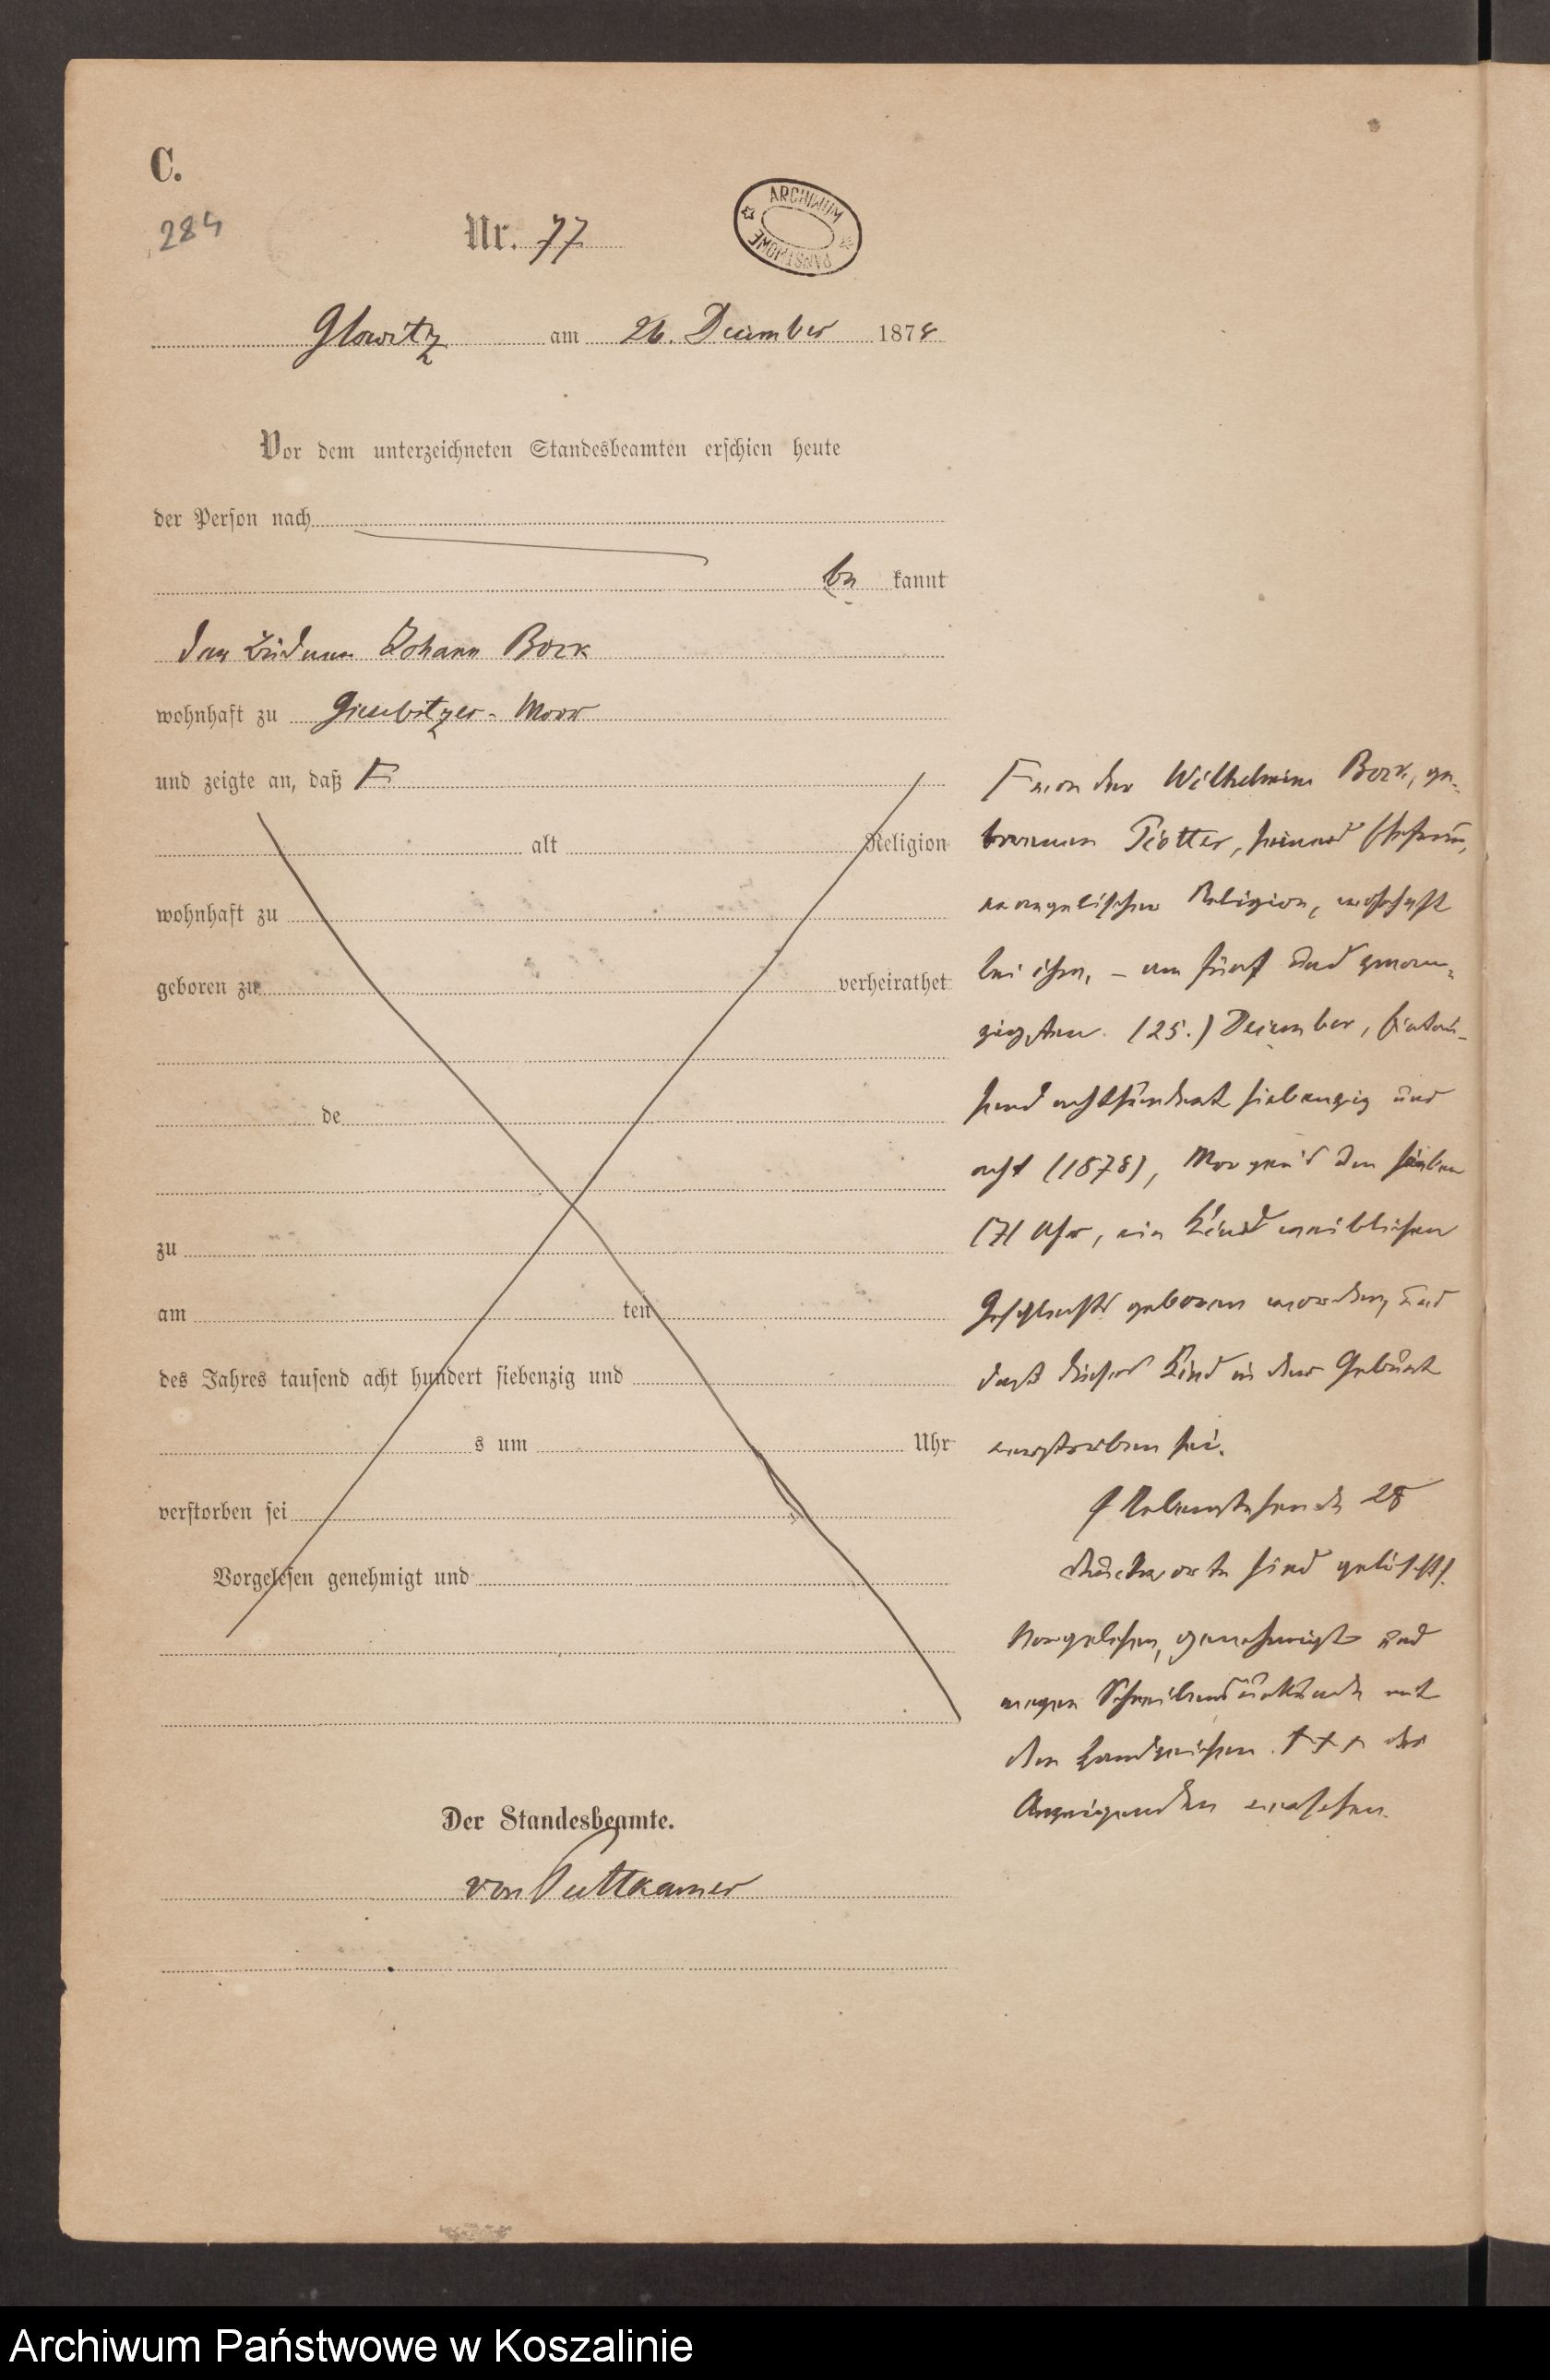 C.
284
Nr. 77
ARCHIWUM PAŃSTWOWE
Glowitz am 26. December 1878
Vor dem unterzeichneten Standesbeamten erschien heute
der Person nach
be kannt
der Büdner Johann Bock
wohnhaft zu Giesebitzer-Moor
und zeigte an, daß F
alt Religion
wohnhaft zu
geboren zu verheirathet
de
zu
am ten
des Jahres tausend acht hundert siebenzig und
s um Uhr
verstorben sei
Vorgelesen genehmigt und
Der Standesbeamte.
von Puttkamer
F von der Wilhelmine Bock, ge-
borenen Piotter, seiner Ehefrau,
evangelischer Religion, wohnhaft
bei ihm, – am fünf und zwan-
zigsten (25.) December, eintau-
send achthundert siebenzig und
acht (1878), Morgens um sieben
(7) Uhr, ein Kind weiblichen
Geschlechts geboren worden, und
daß dieses Kind in der Geburt
verstorben sei.
Nebenstehende 28
Druckworte sind gelöscht.
Vorgelesen, genehmigt und
wegen Schreibensunkunde mit
den Handzeichen +++ des
Anzeigenden versehen.
Archiwum Państwowe w Koszalinie